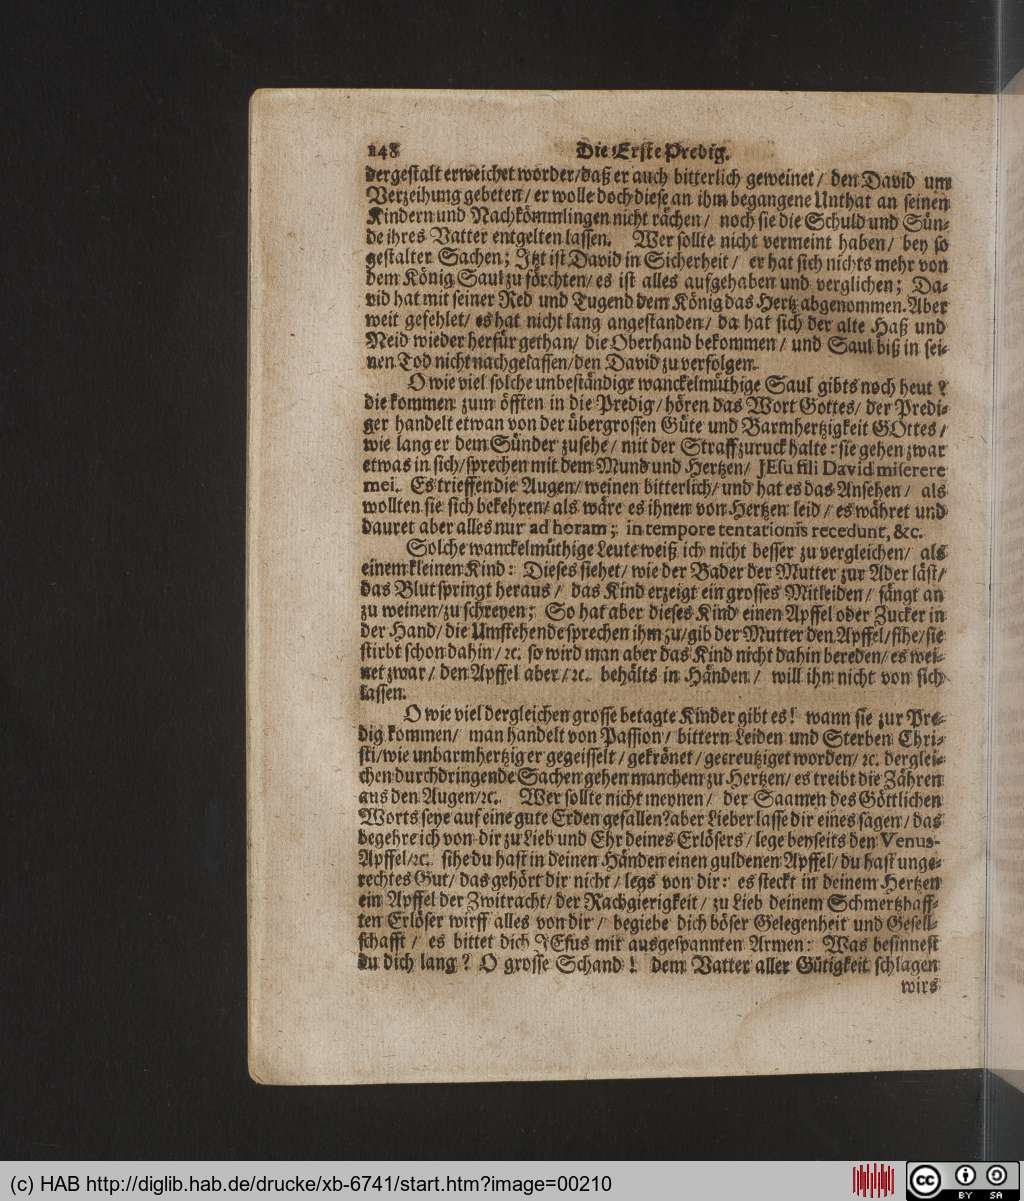 148 Die Erste Predig.
dergestalt erweichet worden/daß er auch bitterlich geweinet/ den David um
Verzeihung gebeten/ er wolle doch diese an ihm begangene Unthat an seinen
Kindern und Nachkömmlingen nicht rächen/ noch sie die Schuld und Sün-
de ihres Vatter entgelten lassen. Wer sollte nicht vermeint haben/ bey so
gestalter Sachen; Jtzt ist David in Sicherheit/ er hat sich nichts mehr von
dem König Saul zu förchten/ es ist alles aufgehaben und verglichen; Da-
vid hat mit seiner Red und Tugend dem König das Hertz abgenommen. Aber
weit gefehlet/ es hat nicht lang angestanden/ da hat sich der alte Haß und
Neid wieder herfür gethan/ die Oberhand bekommen/ und Saul biß in sei-
nen Tod nicht nachgelassen/den David zu verfolgen.
O wie viel solche unbeständige wanckelmüthige Saul gibts noch heut?
die kommen zum öfften in die Predig/ hören das Wort Gottes/ der Predi-
ger handelt etwan von der übergrossen Güte und Barmhertzigkeit GOttes/
wie lang er dem Sünder zusehe/ mit der Straff zuruck halte: sie gehen zwar
etwas in sich/sprechen mit dem Mund und Hertzen/ JEsu fili David miserere
mei. Es trieffen die Augen/ weinen bitterlich/ und hat es das Ansehen/ als
wollten sie sich bekehren/ als wäre es ihnen von Hertzen leid/ es währet und
dauret aber alles nur ad horam; in tempore tentationis recedunt, &c.
Solche wanckelmüthige Leute weiß ich nicht besser zu vergleichen/ als
einem kleinen Kind: Dieses siehet/ wie der Bader der Mutter zur Ader läst/
das Blut springt heraus/ das Kind erzeigt ein grosses Mitleiden/ fängt an
zu weinen/zu schreyen; So hat aber dieses Kind einen Apffel oder Zucker in
der Hand/ die Umstehende sprechen ihm zu/ gib der Mutter den Apffel/ sihe/ sie
stirbt schon dahin/ ꝛc. so wird man aber das Kind nicht dahin bereden/ es wei-
net zwar/ den Apffel aber/ ꝛc. behälts in Händen/ will ihn nicht von sich
lassen.
O wie viel dergleichen grosse betagte Kinder gibt es! wann sie zur Pre-
dig kommen/ man handelt von Passion/ bittern Leiden und Sterben Chri-
sti/wie unbarmhertzig er gegeisselt/ gekrönet/ gecreutziget worden/ ꝛc. derglei-
chen durchdringende Sachen gehen manchem zu Hertzen/ es treibt die Zähren
aus den Augen/ꝛc. Wer sollte nicht meynen/ der Saamen des Göttlichen
Worts seye auf eine gute Erden gefallen? aber Lieber lasse dir eines sagen/ das
begehre ich von dir zu Lieb und Ehr deines Erlösers/ lege beyseits den Venus-
Apffel/ꝛc. sihe du hast in deinen Händen einen guldenen Apffel/ du hast unge-
rechtes Gut/ das gehört dir nicht/ legs von dir: es steckt in deinem Hertzen
ein Apffel der Zwitracht/ der Rachgierigkeit/ zu Lieb deinem Schmertzhaff-
ten Erlöser wirff alles von dir/ begiebe dich böser Gelegenheit und Gesell-
schafft/ es bittet dich JEsus mit ausgespannten Armen: Was besinnest
du dich lang? O grosse Schand! dem Vatter aller Gütigkeit schlagen
wirs
(c) HAB http://diglib.hab.de/drucke/xb-6741/start.htm?image=00210
cc BY SA